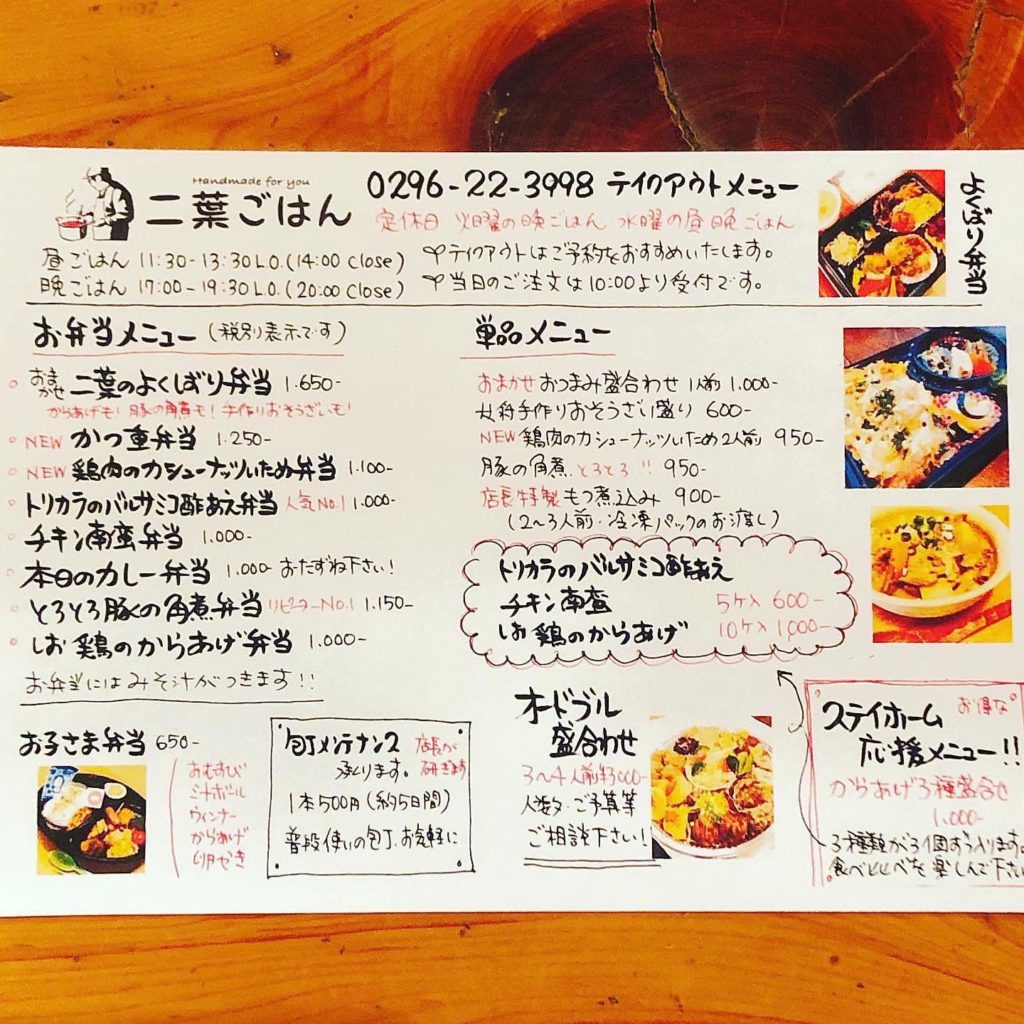 Handmade for you
二葉ごはん
0296-22-3998 テイクアウトメニュー
定休日 火曜の晩ごはん 水曜の昼晩ごはん
昼ごはん 11:30-13:30L.O.(14:00 close)
晩ごはん 17:00-19:30L.O.(20:00 close)
テイクアウトはご予約をおすすめいたします。
当日のご注文は10:00より受付です。
よくばり弁当
お弁当メニュー(税別表示です)
おまかせ 二葉のよくばり弁当 1.650-
からあげも!豚の角煮も!手作りおそうざいも!
NEW かつ重弁当 1.250-
NEW 鶏肉のカシューナッツいため弁当 1.100-
トリカラのバルサミコ酢あえ弁当 人気No.1 1.000-
チキン南蛮弁当 1.000-
本日のカレー弁当 1.000- おたずね下さい!
とろとろ豚の角煮弁当 リピーターNo.1 1.150-
しお鶏のからあげ弁当 1.000-
お弁当にはみそ汁がつきます!!
単品メニュー
おまかせおつまみ盛合わせ 1人前 1.000-
女将手作りおそうざい盛り 600-
NEW 鶏肉のカシューナッツいため2人前 950-
豚の角煮とろとろ!! 950-
店長特製もつ煮込み 900-
(2〜3人前・冷凍パックのお渡し)
トリカラのバルサミコ酢あえ
チキン南蛮 5ケ入 600-
しお鶏のからあげ 10ケ入 1,000-
お子さま弁当 650-
おむすび
ミートボール
ウィンナー
からあげ
卵やき
包丁メンテナンス 店長が
承ります。 研ぎます
1本500円(約5日間)
普段使いの包丁、お気軽に
オードブル
盛合わせ
3〜4人前¥3000-
人数・ご予算等
ご相談下さい!
ステイホーム お得な
応援メニュー!!
からあげ3種盛合せ
1.000-
3種類が3個ずつ入ります。
食べくらべを楽しんで下さい